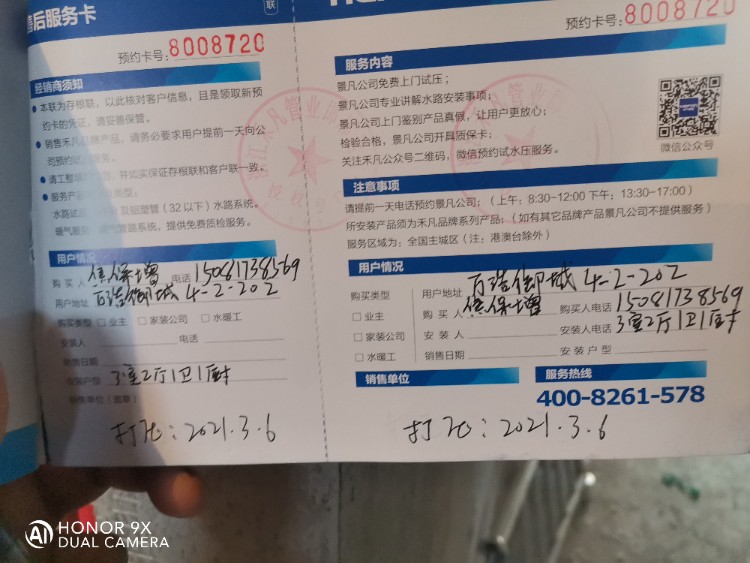 售后服务卡
联
预约卡号:8008720
经销商须知
本联为存根联,以此核对客户信息,且是领取新预
约卡的凭证,请妥善保管。
销售禾凡品牌产品,请务必要求用户提前一天向公
司预约试
请工整填 并如实保证存根联和客户联一致。
服务产 类型:
水路试 及铝塑管(32以下)水路系统。
暖气服务 管路系统,提供免费质检服务。
用户情况
购买人 焦保增 电话 15081738569
用户地址 百浩御城 4-2-202
购买类型 □业主 □家装公司 □水暖工
安装人 电话
销售日期
安装户型 3室2厅1卫1厨
销售单位(盖章)
打压:2021.3.6
预约卡号:8008720
服务内容
景凡公司免费上门试压;
景凡公司专业讲解水路安装事项;
景凡公司上门鉴别产品真假,让用户更放心;
检验合格,景凡公司开具质保卡;
关注禾凡公众号二维码,微信预约试水压服务。
微信公众号
注意事项
请提前一天电话预约景凡公司;(上午:8:30-12:00 下午:13:30-17:00)
所安装产品须为禾凡品牌系列产品;(如有其它品牌产品景凡公司不提供服务)
服务区域为:全国主城区(注:港澳台除外)
用户情况
购买类型
□业主
□家装公司
□水暖工
用户地址 百浩御城 4-2-202
购买人 焦保增 购买人电话 15081738569
安装人 安装人电话 3室2厅1卫1厨
销售日期 安装户型
销售单位
服务热线
400-8261-578
打压:2021.3.6
HONOR 9X
DUAL CAMERA